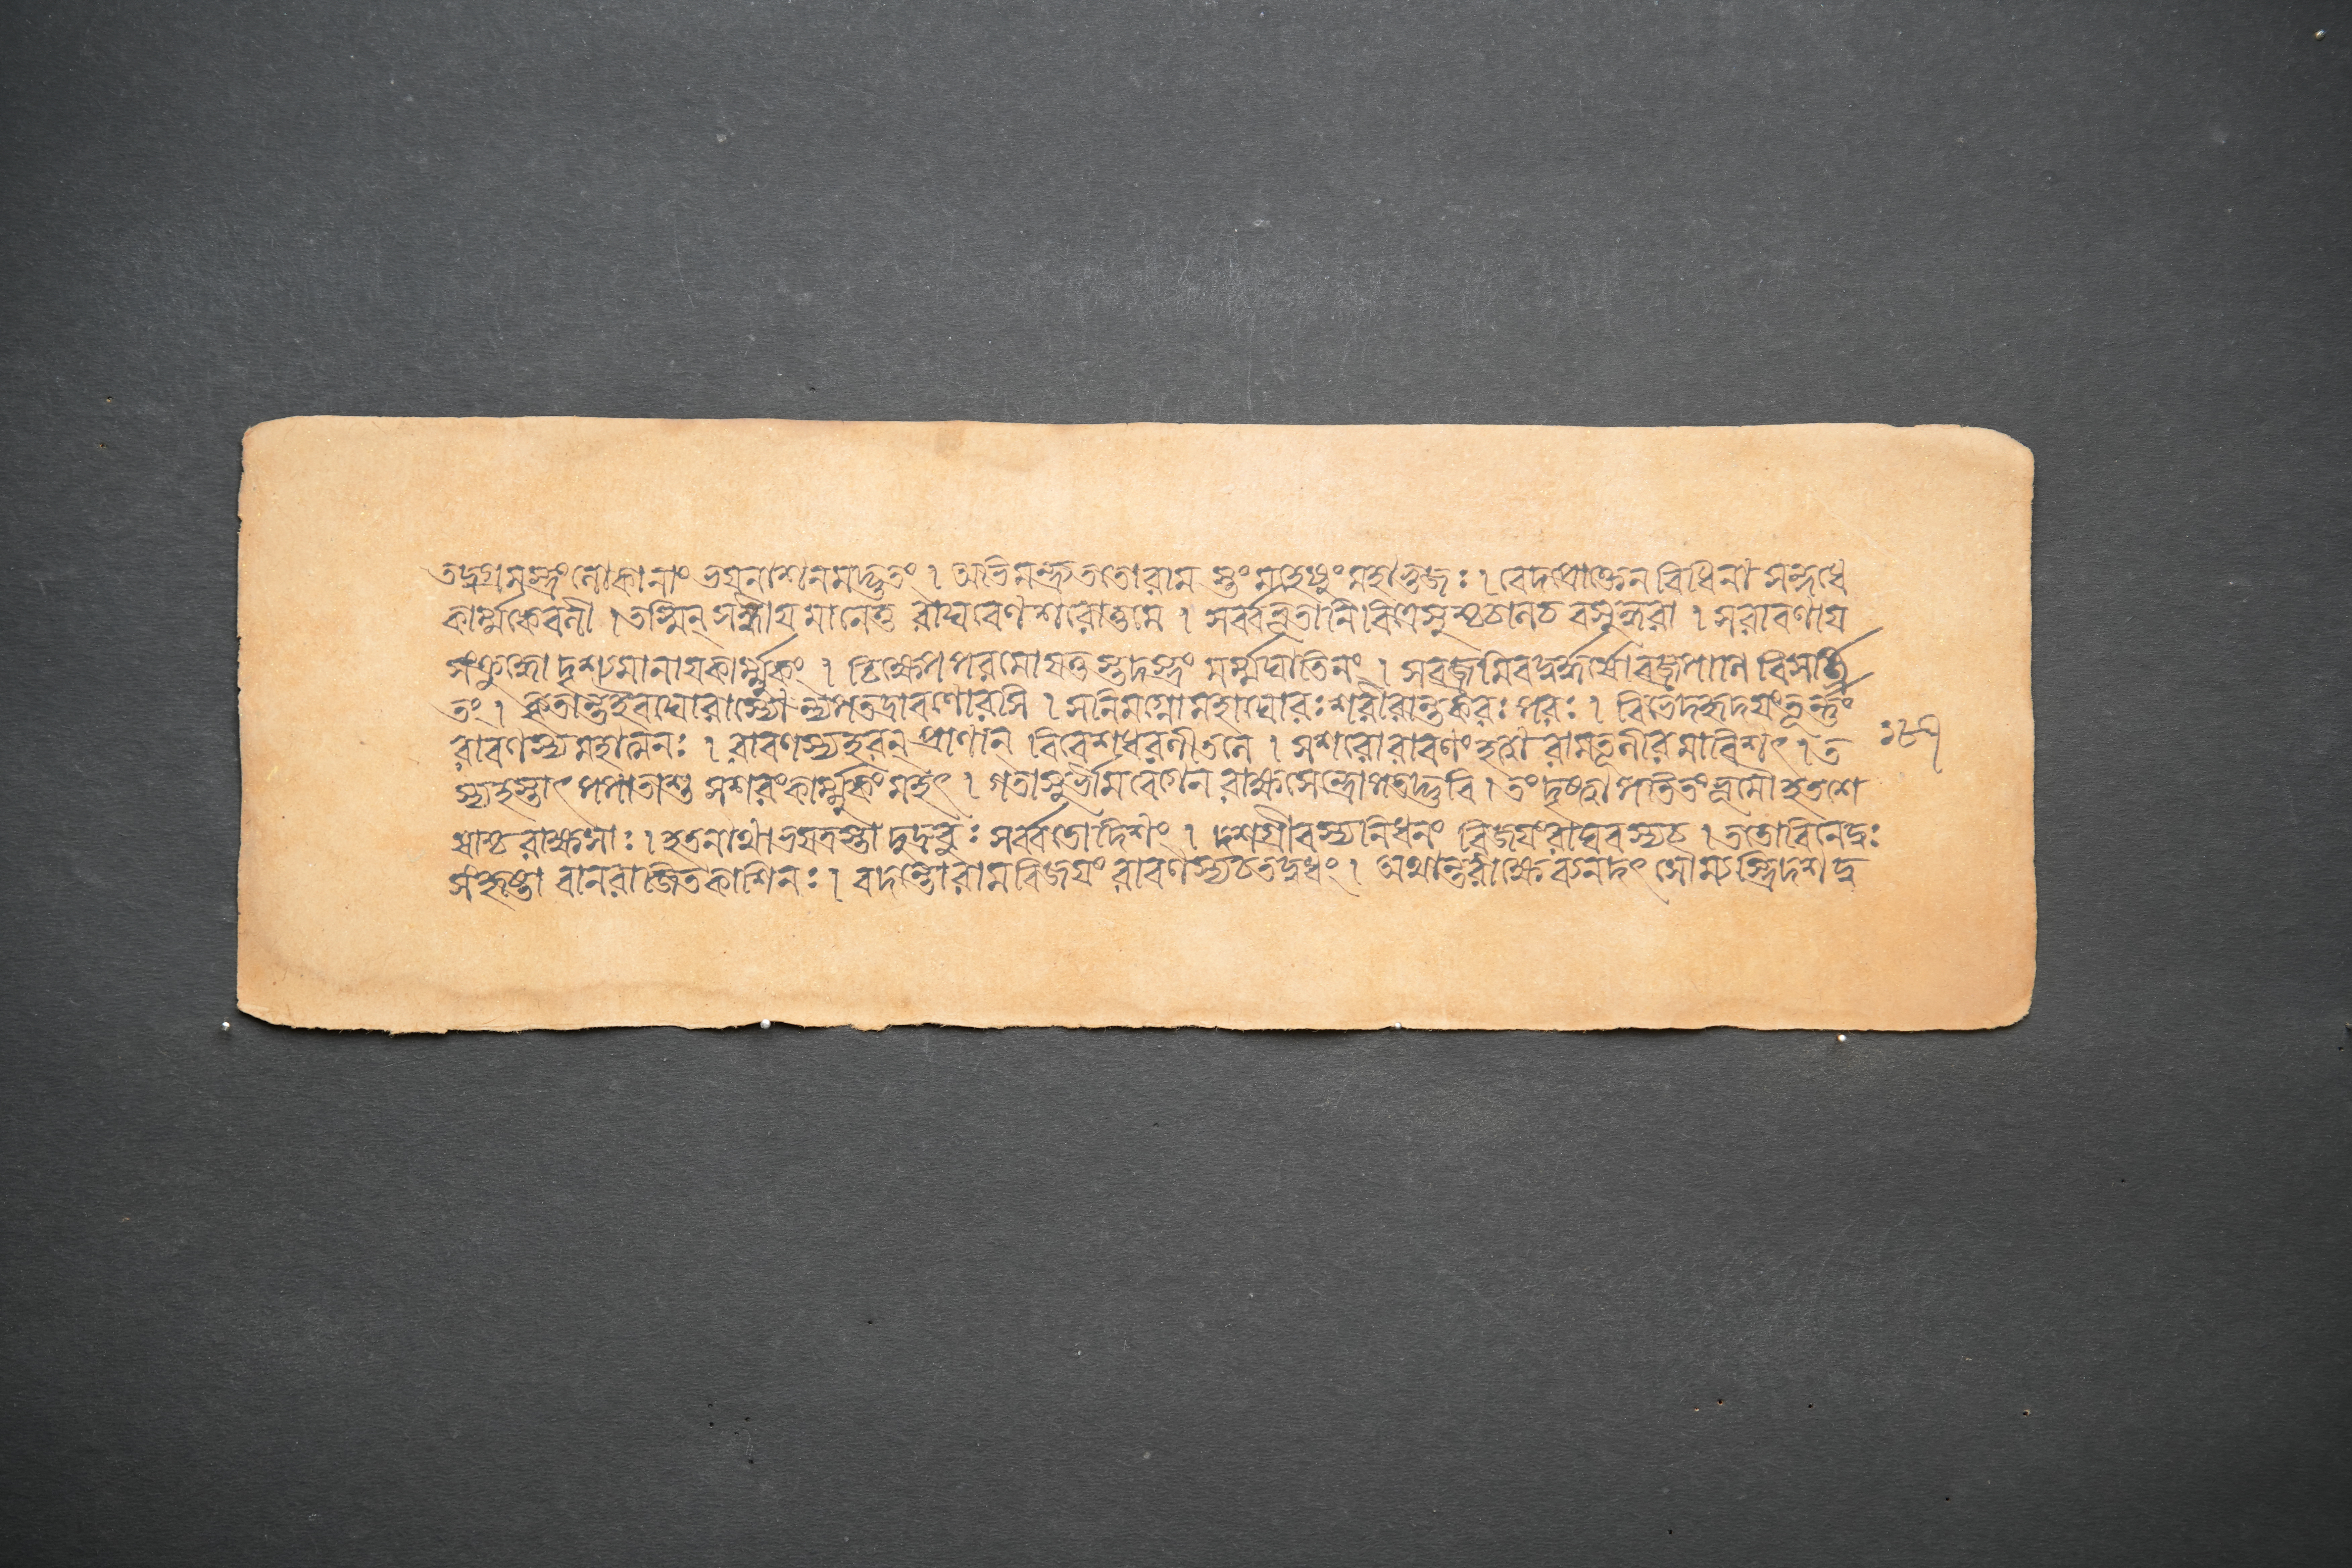 তদ্বদ্রমস্ত্রং লোকানাং ভয়নাশনমদ্ভুতং । অভিমন্ত্র্য ততো রাম স্তং মহেষুং মহাভুজঃ । বেদপ্রোক্তেন বিধিনা সন্দধে
কার্ম্মুকে বলী । তস্মিন্ সন্ধীয়মানে তু রাঘবেণ শরোত্তমে । সর্ব্বভূতানি বিত্রেসুশ্চচাল চ বসুন্ধরা । স রাবণায়
সংক্রুদ্ধো দৃশমানায় কার্ম্মুকং । চিক্ষেপ পরমায়ত্ত স্তদস্ত্রং মর্ম্মঘাতিনং । স বজ্র মিব দুর্দ্ধর্ষো বজ্রপাণি বিসর্জ্জি
তং । কৃতান্ত ইব ঘোরাস্যো ন্যপতদ্রাবণোরসি । স নিমগ্নো মহাঘোরঃ শরীরান্তকরঃ পরঃ । বিভেদ হৃদয়ং তূর্ন্নং
রাবণস্য মহাত্মনঃ । রাবণস্য হরন্ প্রাণান্ বিবেশ ধরণীতলে । স শরো রাবণং হত্বা রামতূণীরমাবিশৎ । ত ১৮৭
স্য হস্তাৎ পপাতাশু সশরং কার্ম্মুকং মহৎ । গতাসুর্ভীমবেগেন রাক্ষসেন্দ্রোপতদ্ভুবি । তং দৃষ্ট্বা পতিতং ভূমৌ হতশে
ষাশ্চ রাক্ষসাঃ । হতনাথা ভয়ত্রস্তা দুদ্রুবুঃ সর্ব্বতো দিশং । দশগ্রীবস্য নিধনং বিজয়ং রাঘবস্য চ । ততো বিনেদুঃ
সংহৃষ্টা বানরা জিতকাশিনঃ । বদন্তো রামবিজয়ং রাবণস্য চ তদ্বধং । অথান্তরীক্ষে ব্যনদৎ সৌম্যস্ত্রিদশ দু